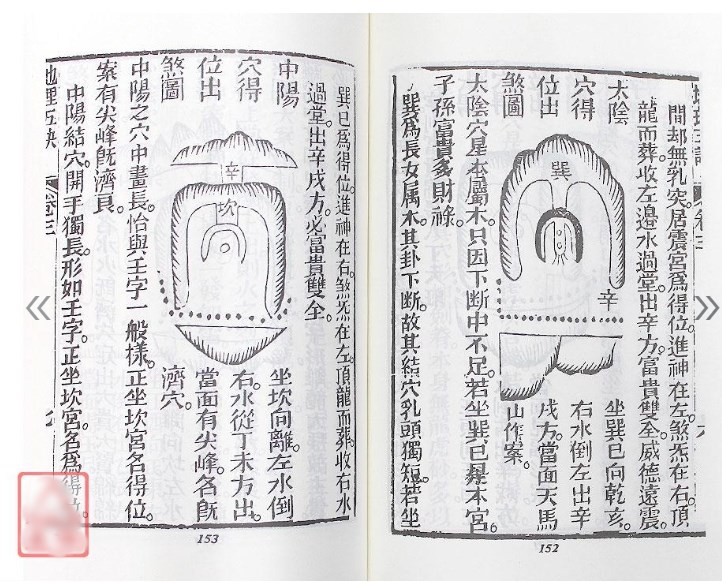 間却無乳突。居震宮爲得位。進神在左。煞炁在右。頂
龍而葬。收左邊水過堂。出辛方。富貴雙全。威德遠震。
太陰
穴得
位出
煞圖
巽
辛
坐巽巳向乾亥。
右水倒左出辛
戌方。當面天馬
山作案。
太陰穴星本屬木。只因下斷中不足。若坐巽巳是本宮。
子孫富貴多財祿。
巽爲長女屬木。其卦下斷。故其結穴乳頭獨短。若坐
152
巽巳爲得位。進神在右。煞炁在左。頂龍而葬。收右水
過堂。出辛戌方。必富貴雙全。
中陽
穴得
位出
煞圖
辛
坎
坐坎向離。左水倒
右。水從丁未方出。
當面有尖峰。名旣
濟穴。
中陽之穴中畫長。恰與壬字一般樣。正坐坎宮名得位。
案有尖峰旣濟貝。
中陽結穴。開手獨長。形如壬字。正坐坎宮。名爲得位。
地理五訣
卷三
153